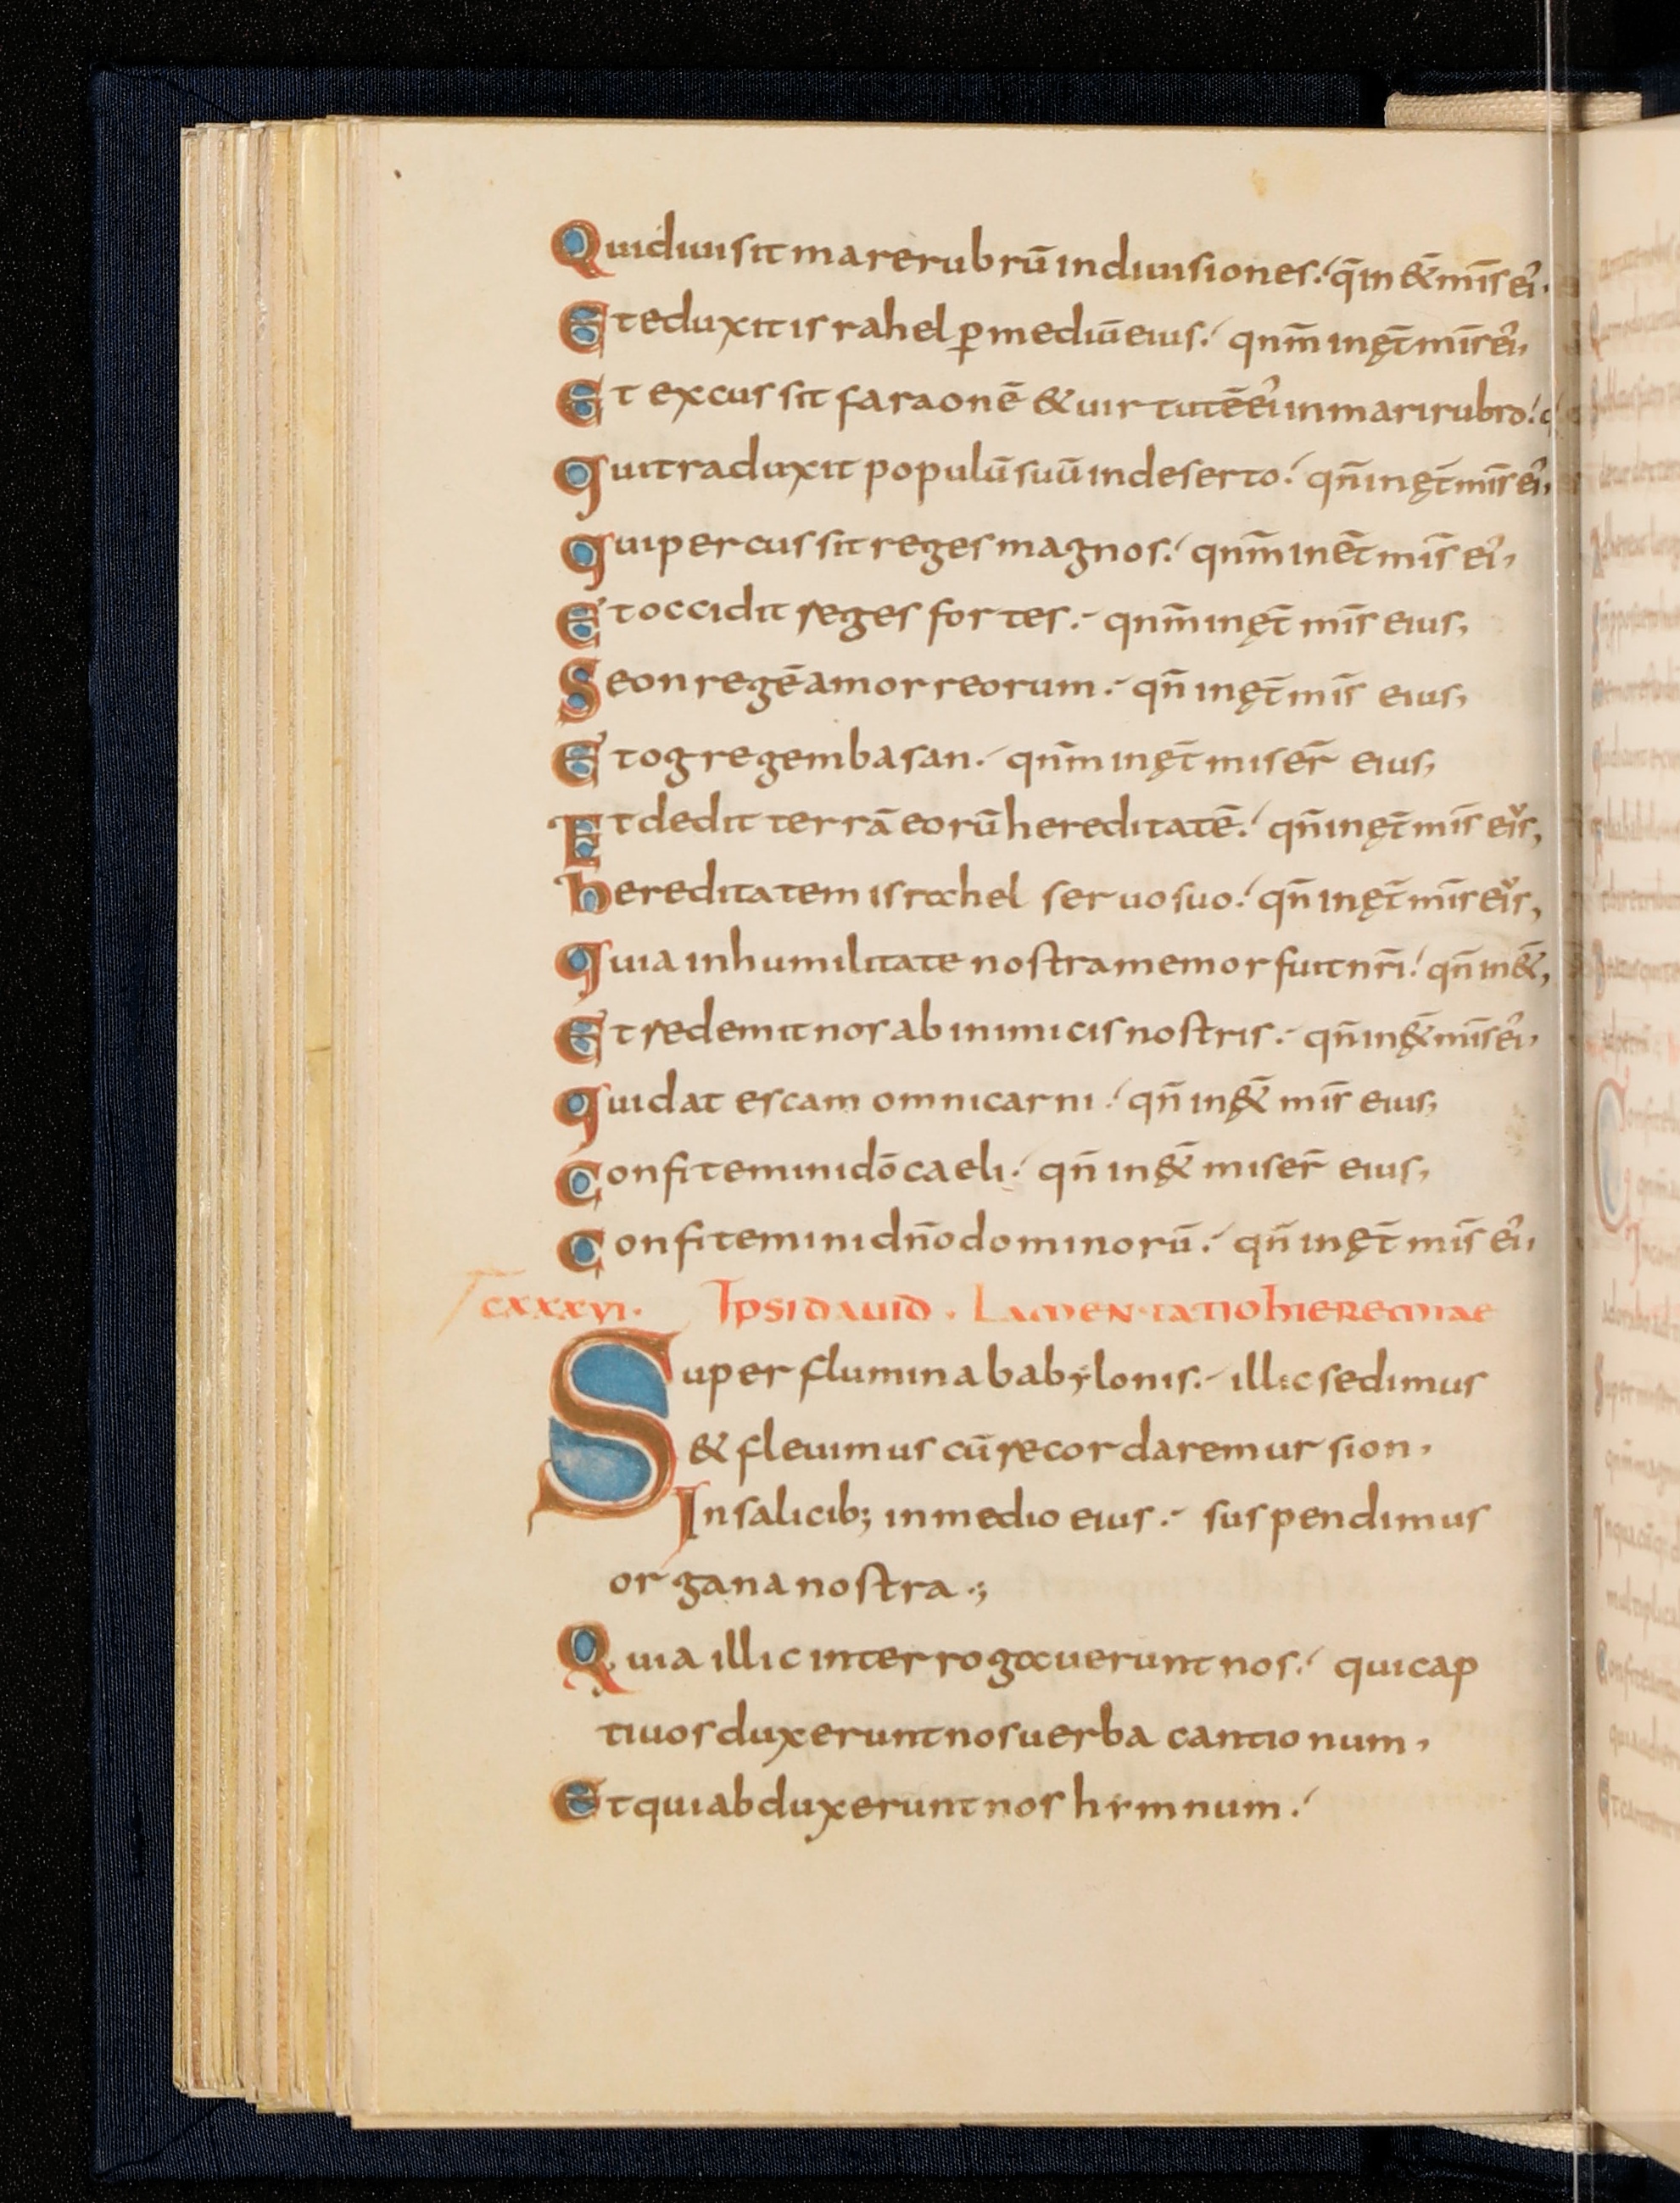 Quidiuisit mare rubrū in diuisiones. qm̄ in & mis̄ ei.
Et eduxit israhel p mediū eius. qnm̄ in ęt̄ mis̄ ei,
Et excussit faraonē & uirtutē ei in mari rubro.
qui traduxit populū suū in deserto. qn̄ in ęt̄ mis̄ ei,
qui percussit reges magnos. qnm̄ in et̄ mis̄ ei,
Et occidit reges fortes. qnm̄ in ęt̄ mis̄ eius,
Seon regē amorreorum. qn̄ in ęt̄ mis̄ eius,
Et og regem basan. qnm̄ in ęt̄ miser̄ eius,
Et dedit terrā eorū hereditatē. qn̄ in ęt̄ mis̄ eis,
hereditatem israhel seruo suo. qn̄ in ęt̄ mis̄ eis,
quia in humilitate nostra memor fuit nr̄i. qn̄ in &,
Et redemit nos ab inimicis nostris. qn̄ in & mis̄ ei,
qui dat escam omni carni. qn̄ in & mis̄ eius,
Confitemini dō caeli. qn̄ in & miser̄ eius,
Confitemini dn̄o dominorū. qn̄ in ęt̄ mis̄ ei,
cxxxvi. Ipsi dauid. Lamentatio hieremiae
Super flumina babylonis. illic sedimus
& fleuimus cū recordaremur sion,
In salicib; in medio eius. suspendimus
organa nostra.;
Quia illic interrogauerunt nos. qui cap
tiuos duxerunt nos uerba cantionum,
Et qui abduxerunt nos hymnum.